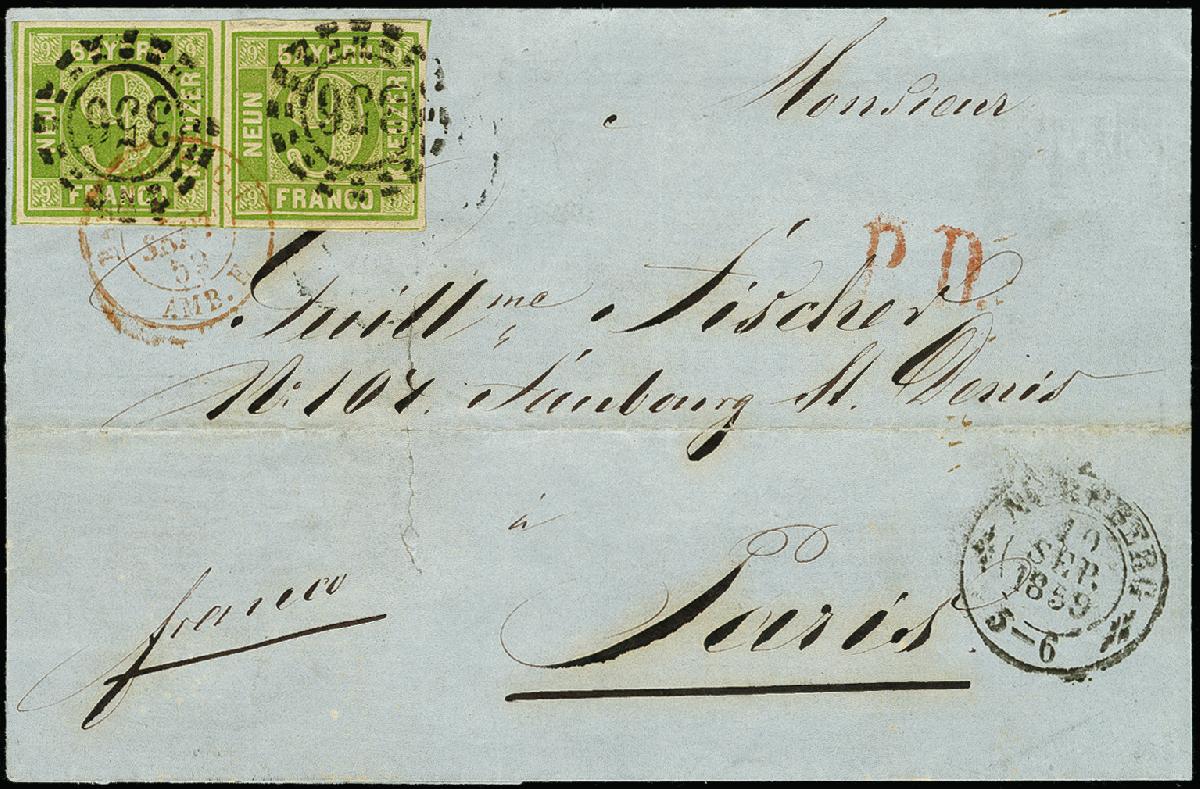 BAYERN
NEUN
KREUZER
FRANCO
9
BAYERN
NEUN
KREUZER
FRANCO
9
356
Monsieur
P.D.
AMB.
Guill^me Fischer
N: 107. Faubourg St. Denis
à
Paris
franco
NÜRNBERG
10
SEP.
1859
5-6